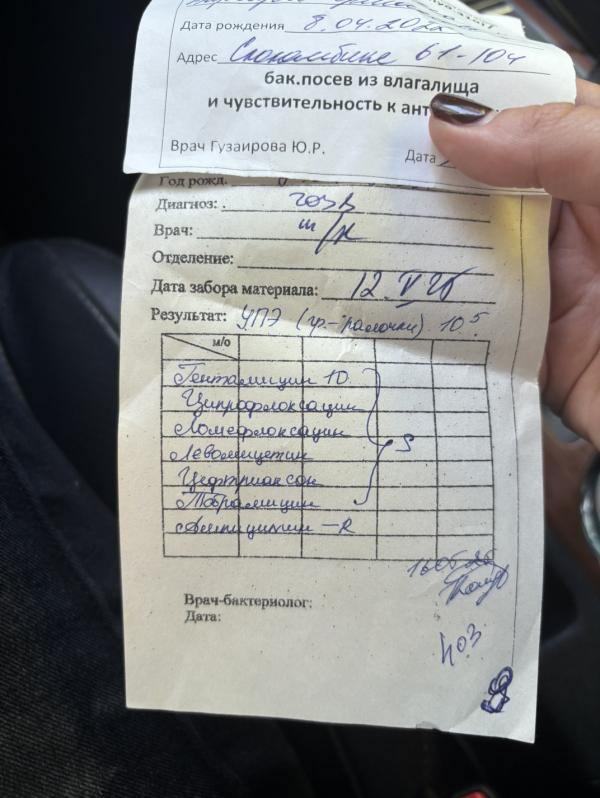 Дата рождения 8.04.202
Адрес 61-104
бак.посев из влагалища
и чувствительность к ант
Врач Гузаирова Ю.Р. Дата
Год рожд.
Диагноз:
Врач:
Отделение:
Дата забора материала: 12.V 26
Результат: УПЭ (гр.-палочки) 10⁵
м/о
Гентамицин 10
Ципрофлоксацин
Ломефлоксацин
Левомицетин S
Цефтриаксон
Тобрамицин
Ампициллин – R
Врач-бактериолог:
Дата:
403